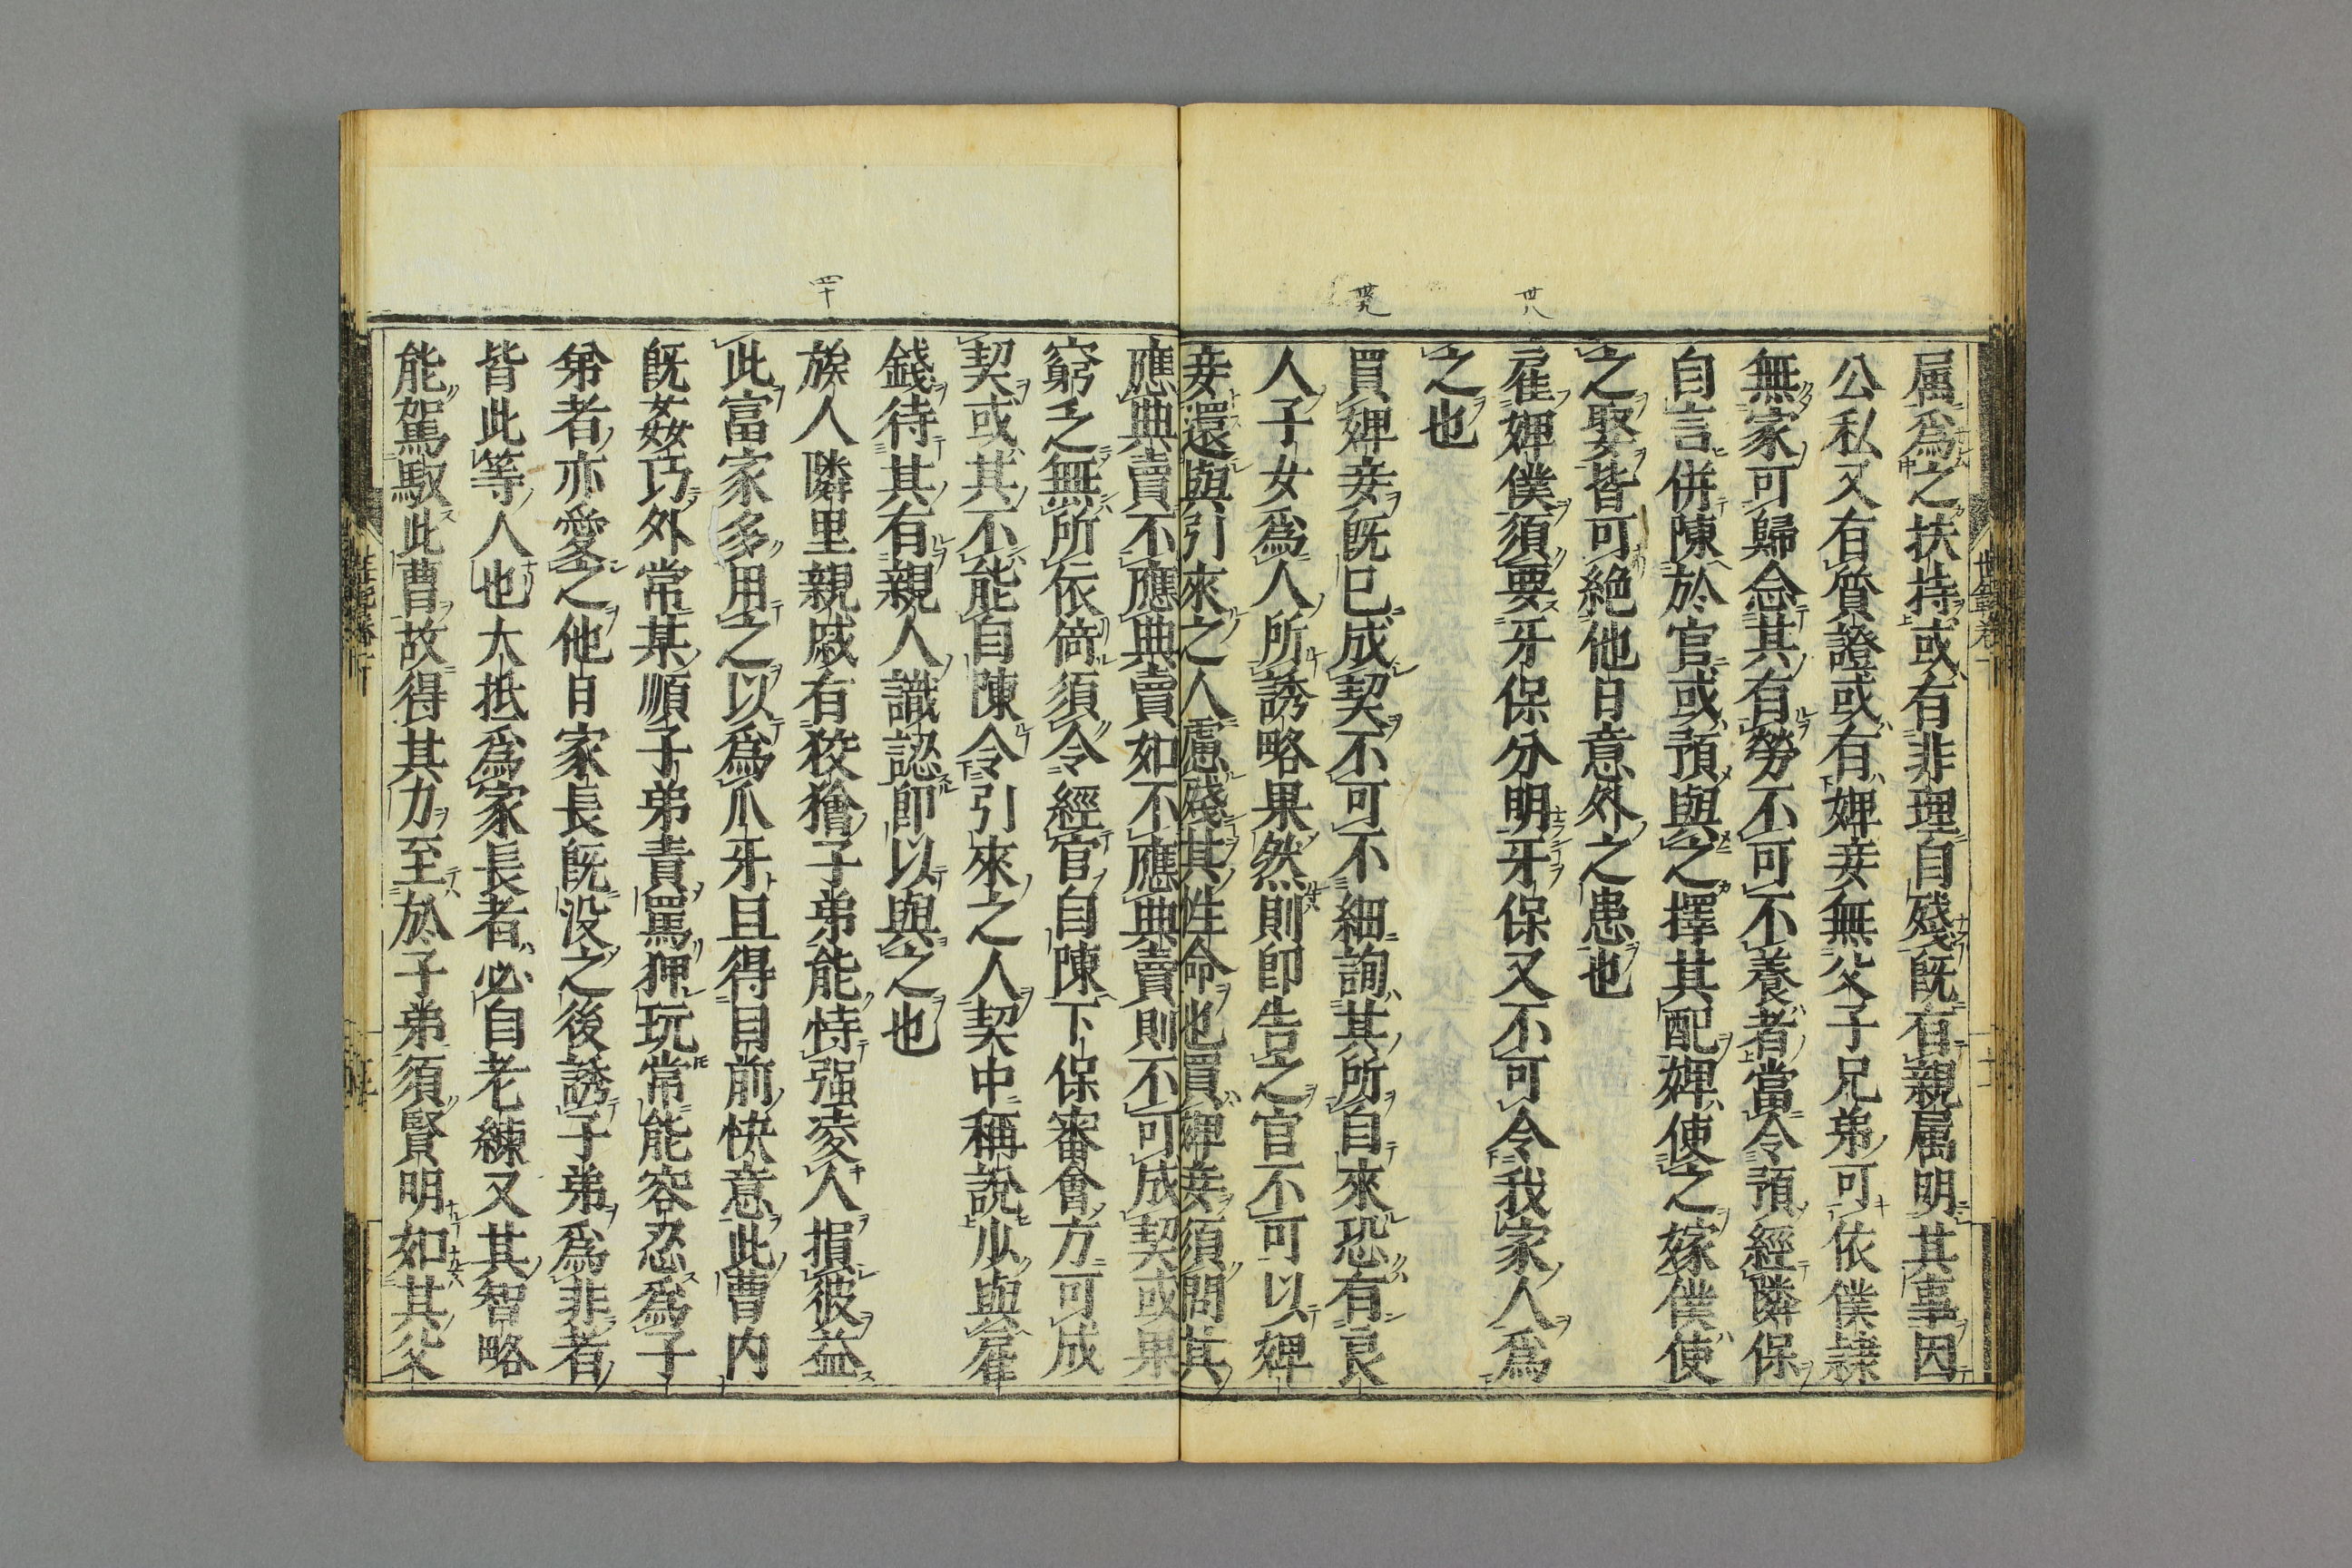 卅八
卅九
属爲之扶持或有非理自殘既有親属明其事因
公私又有質證或有婢妾無父子兄弟可依僕隷
無家可歸念其有勞不可不養者當令預經隣保
自言併陳於官或預與之擇其配婢使之嫁僕使
之娶皆可絶他日意外之患也
雇婢僕須要牙保分明牙保又不可令我家人爲
之也
買婢妾既已成契不可不細詢其所自來恐有良
人子女爲人所誘略果然則即告之官不可以婢
妾還與引來之人慮殘其性命也買婢妾須問其
四十
應典賣不應典賣如不應典賣則不可成契或果
窮乏無所依倚須令經官自陳下保審會方可成
契或其不能自陳令引來之人契中稱說少與雇
錢待其有親人識認即以與之也
族人隣里親戚有狡獪子弟能恃强凌人損彼益
此富家多用之以爲爪牙且得目前快意此曹内
既姦巧外常某順子弟責罵狎玩常能容忍爲子
弟者亦愛之他日家長既没之後誘子弟爲非者
皆此等人也大抵爲家長者必自老練又其智略
能駕馭此曹故得其力至於子弟須賢明如其父